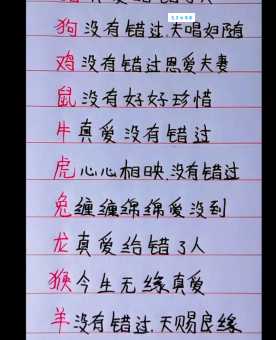 狗没有错过夫唱妇随
鸡没有错过恩爱夫妻
鼠没有好好珍惜
牛真爱没有错过
虎心心相映没有错过
兔缠缠绵绵爱没到
龙真爱给错了人
猴今生无缘真爱
羊没有错过天赐良缘